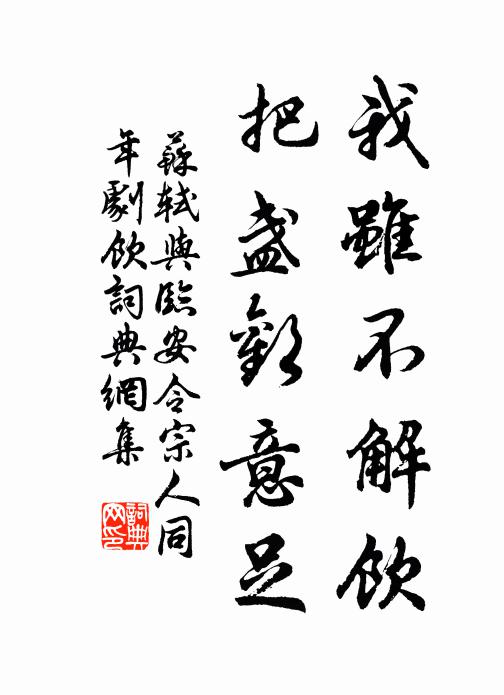 我雖不解飲
把盞歡意足
蘇軾與臨安令宗人同
年劇飲詞典網集
詞典
网印